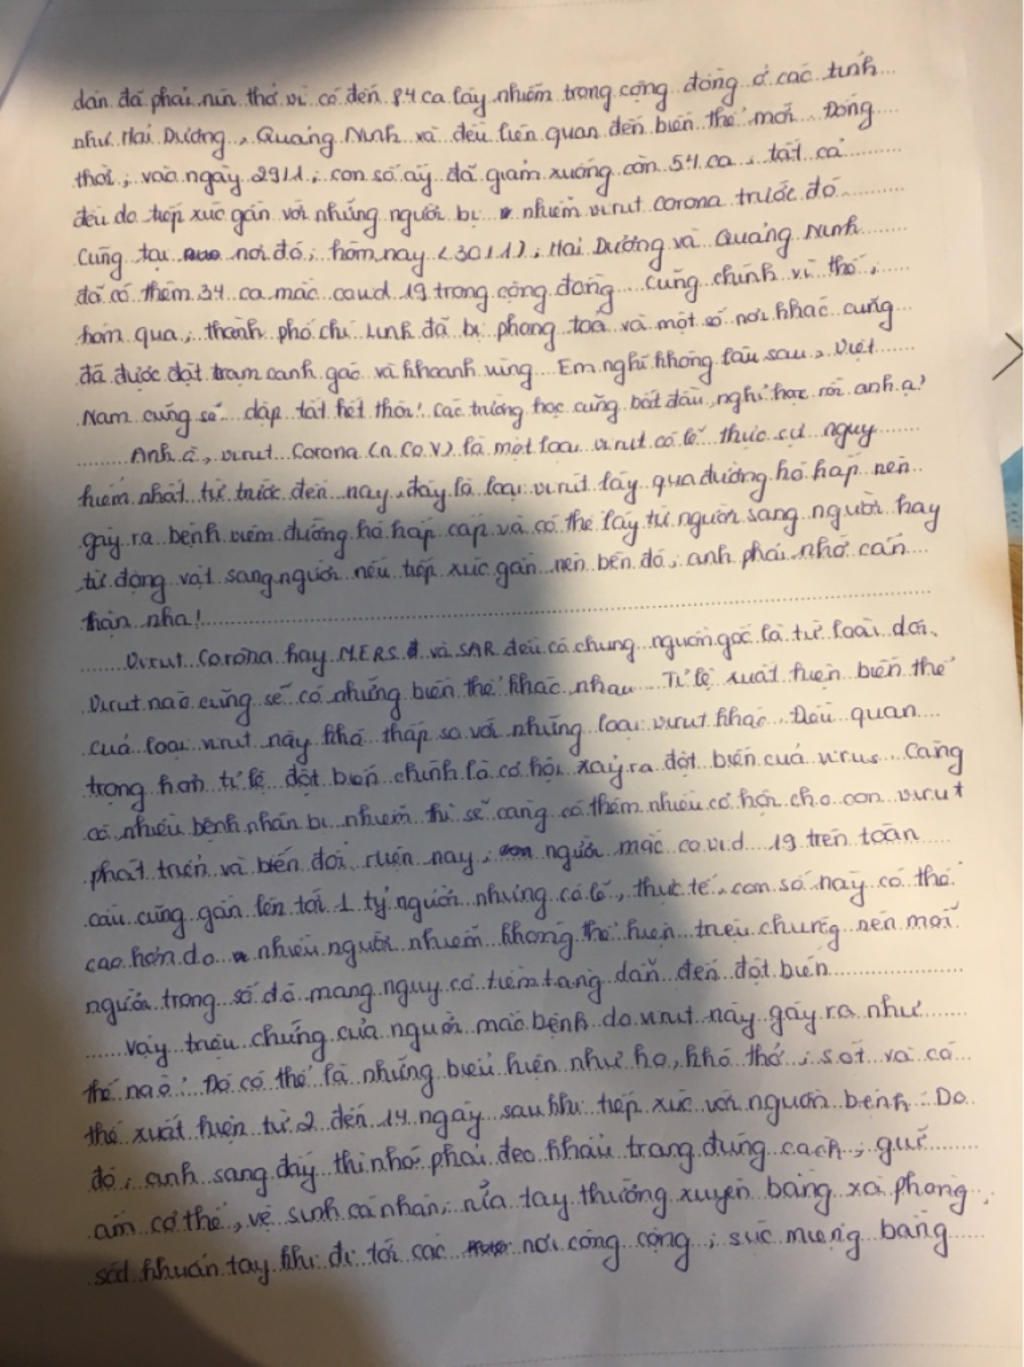 dân đã phải nín thở vì có đến 84 ca lây nhiễm trong cộng đồng ở các tỉnh
như Hải Dương, Quảng Ninh và đều liên quan đến biến thể mới. Đồng
thời, vào ngày 29/1, con số ấy đã giảm xuống còn 54 ca, tất cả
đều do tiếp xúc gần với những người bị nhiễm virut corona trước đó
Cũng tại nơi đó, hôm nay (30/1), Hải Dương và Quảng Ninh
đã có thêm 34 ca mắc covid 19 trong cộng đồng. Cũng chính vì thế,
hôm qua, thành phố chí Linh đã bị phong toả và một số nơi khác cũng
đã được đặt trạm canh gác và khoanh vùng. Em nghĩ không lâu sau, Việt
Nam cũng sẽ dập tắt hết thôi! Các trường học cũng bắt đầu nghỉ học rồi anh ạ!
Anh à, virut Corona (nCoV) là một loại virut có lẽ thực sự nguy
hiểm nhất từ trước đến nay, đây là loại virut lây qua đường hô hấp nên
gây ra bệnh viêm đường hô hấp cấp và có thể lây từ người sang người hay
từ động vật sang người nếu tiếp xúc gần nên bên đó, anh phải nhớ cẩn
thận nha!
Virut Corona hay MERS và SAR đều có chung nguồn gốc là từ loài dơi.
Virut nào cũng sẽ có những biến thể khác nhau. Tỉ lệ xuất hiện biến thể
của loại virut này khá thấp so với những loại virut khác. Điều quan
trọng hơn tỉ lệ đột biến chính là cơ hội xảy ra đột biến của virus. Càng
có nhiều bệnh nhân bị nhiễm thì sẽ càng có thêm nhiều cơ hội cho con virut
phát triển và biến đổi. Hiện nay, người mắc covid 19 trên toàn
cầu cũng gần lên tới 1 tỷ người nhưng có lẽ, thực tế, con số này có thể
cao hơn do nhiều người nhiễm không thể hiện triệu chứng nên mỗi
người trong số đó mang nguy cơ tiềm tàng dẫn đến đột biến
Vậy triệu chứng của người mắc bệnh do virut này gây ra như
thế nào? Đó có thể là những biểu hiện như ho, khó thở, sốt và có
thể xuất hiện từ 2 đến 14 ngày sau khi tiếp xúc với nguồn bệnh. Do
đó, anh sang đấy thì nhớ phải đeo khẩu trang đúng cách, giữ
ấm cơ thể, vệ sinh cá nhân, rửa tay thường xuyên bằng xà phòng,
sát khuẩn tay khi đi tới các nơi công cộng, súc miệng bằng